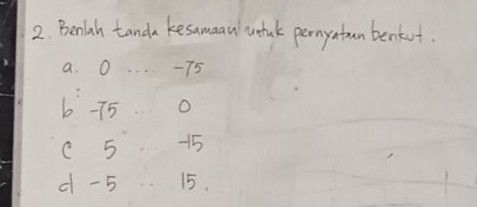 2. Berilah tanda kesamaan untuk pernyataan berikut.
a. 0 .... -75
b -75 ... 0
c 5 ... -15
d -5 ... 15.